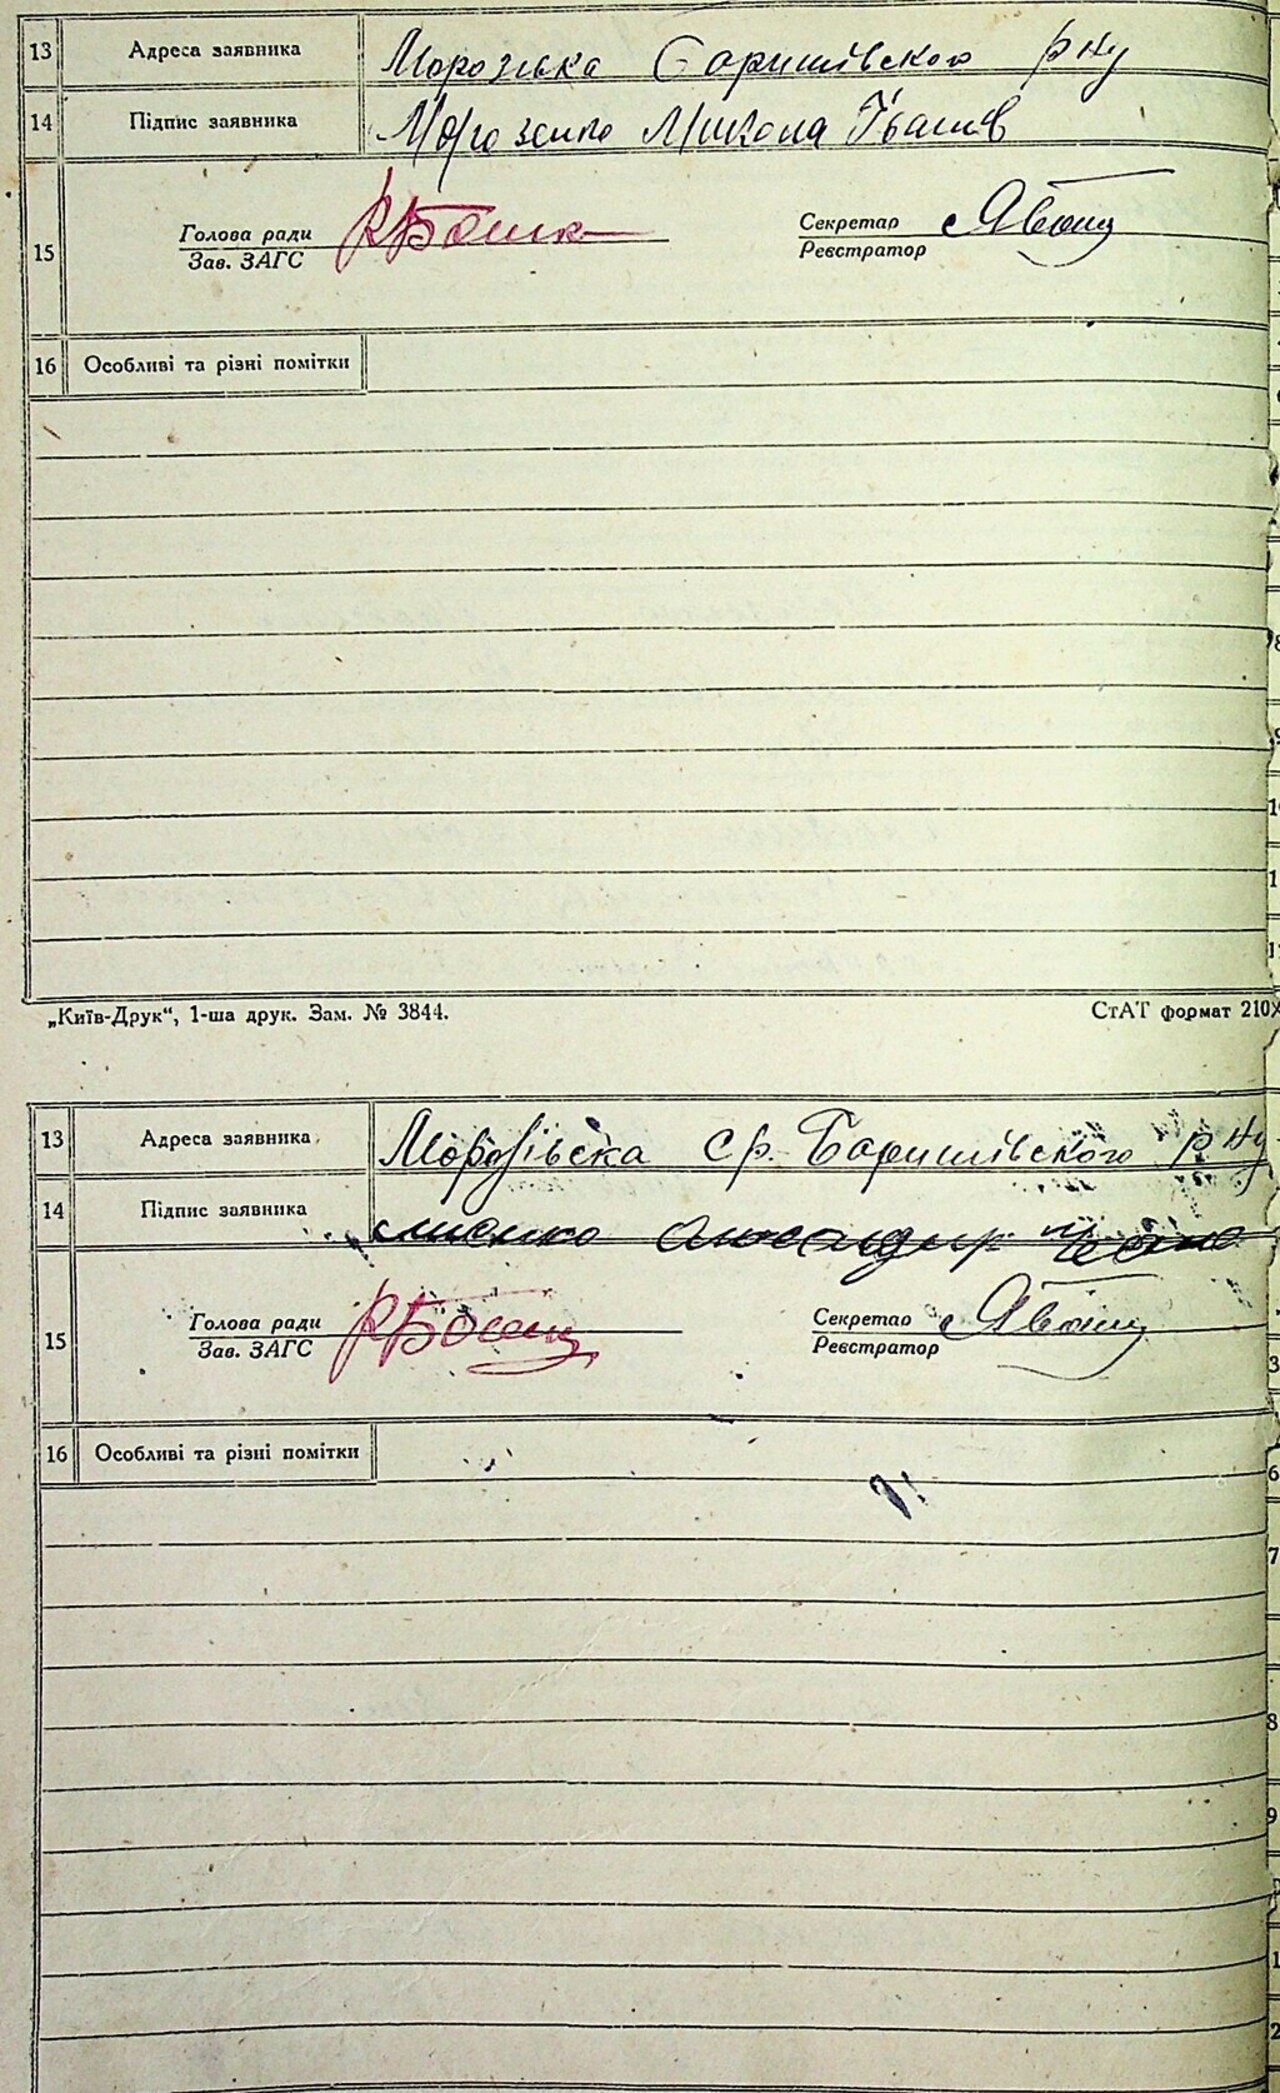 13 Адреса заявника Морозівка Баришівского р ну
14 Підпис заявника Морозенко Микола Іванов
15 Голова ради Секретар
Зав. ЗАГС Реєстратор
16 Особливі та різні помітки
„Київ-Друк“, 1-ша друк. Зам. № 3844. СтАТ формат 210
13 Адреса заявника Морозівска ср. Баришівского р ну
14 Підпис заявника
15 Голова ради Секретар
Зав. ЗАГС Реєстратор
16 Особливі та різні помітки